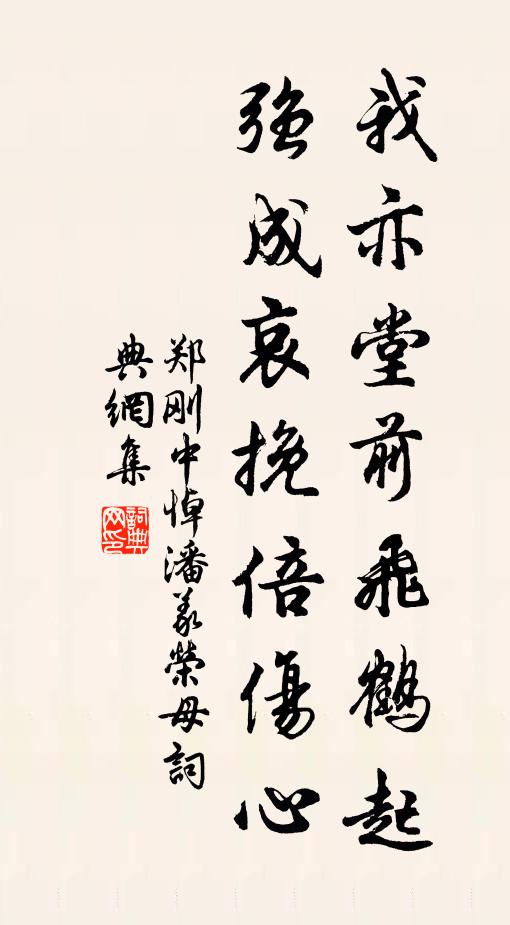 我亦堂前飛鶴起
強成哀挽倍傷心
郑刚中悼潘義榮母詞
典網集
詞典网印